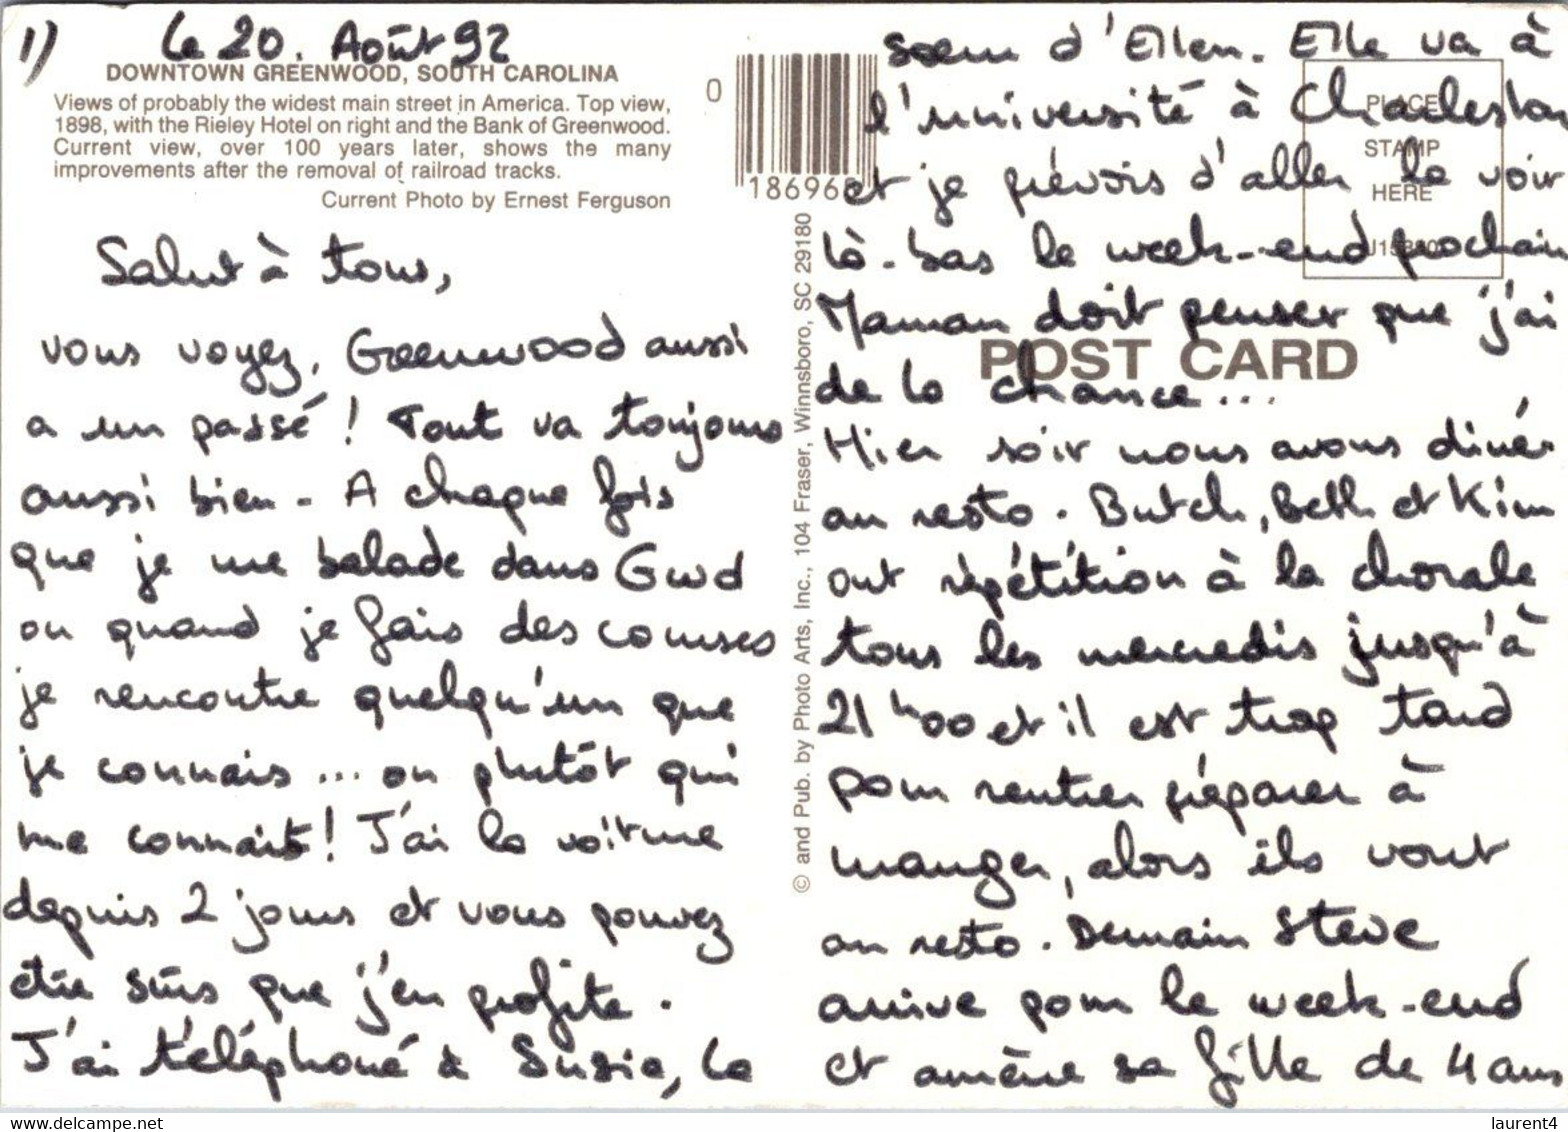 1)
Le 20. Août 92
DOWNTOWN GREENWOOD, SOUTH CAROLINA
Views of probably the widest main street in America. Top view,
1898, with the Rieley Hotel on right and the Bank of Greenwood.
Current view, over 100 years later, shows the many
improvements after the removal of railroad tracks.
Current Photo by Ernest Ferguson
Salut à tous,
vous voyez, Greenwood aussi
a un passé ! Tout va toujours
aussi bien - A chaque fois
que je me balade dans Gwd
ou quand je fais des courses
je rencontre quelqu'un que
je connais ... ou plutôt qui
me connait ! J'ai la voiture
depuis 2 jours et vous pouvez
être sûrs que j'en profite .
J'ai téléphoné à Susie, la
0
18696
© and Pub. by Photo Arts, Inc., 104 Fraser, Winnsboro, SC 29180
PLACE
STAMP
HERE
POST CARD
soeur d'Ellen. Elle va à
l'université à Charleston
et je prévois d'aller la voir
là-bas le week-end prochain
Maman doit penser que j'ai
de la chance ...
Hier soir nous avons diné
au resto. Butch, Beth et Kim
ont répétition à la chorale
tous les mercredis jusqu'à
21h00 et il est trop tard
pour rentrer préparer à
manger, alors ils vont
au resto. Demain Steve
arrive pour le week-end
et amène sa fille de 4 ans
laurent4